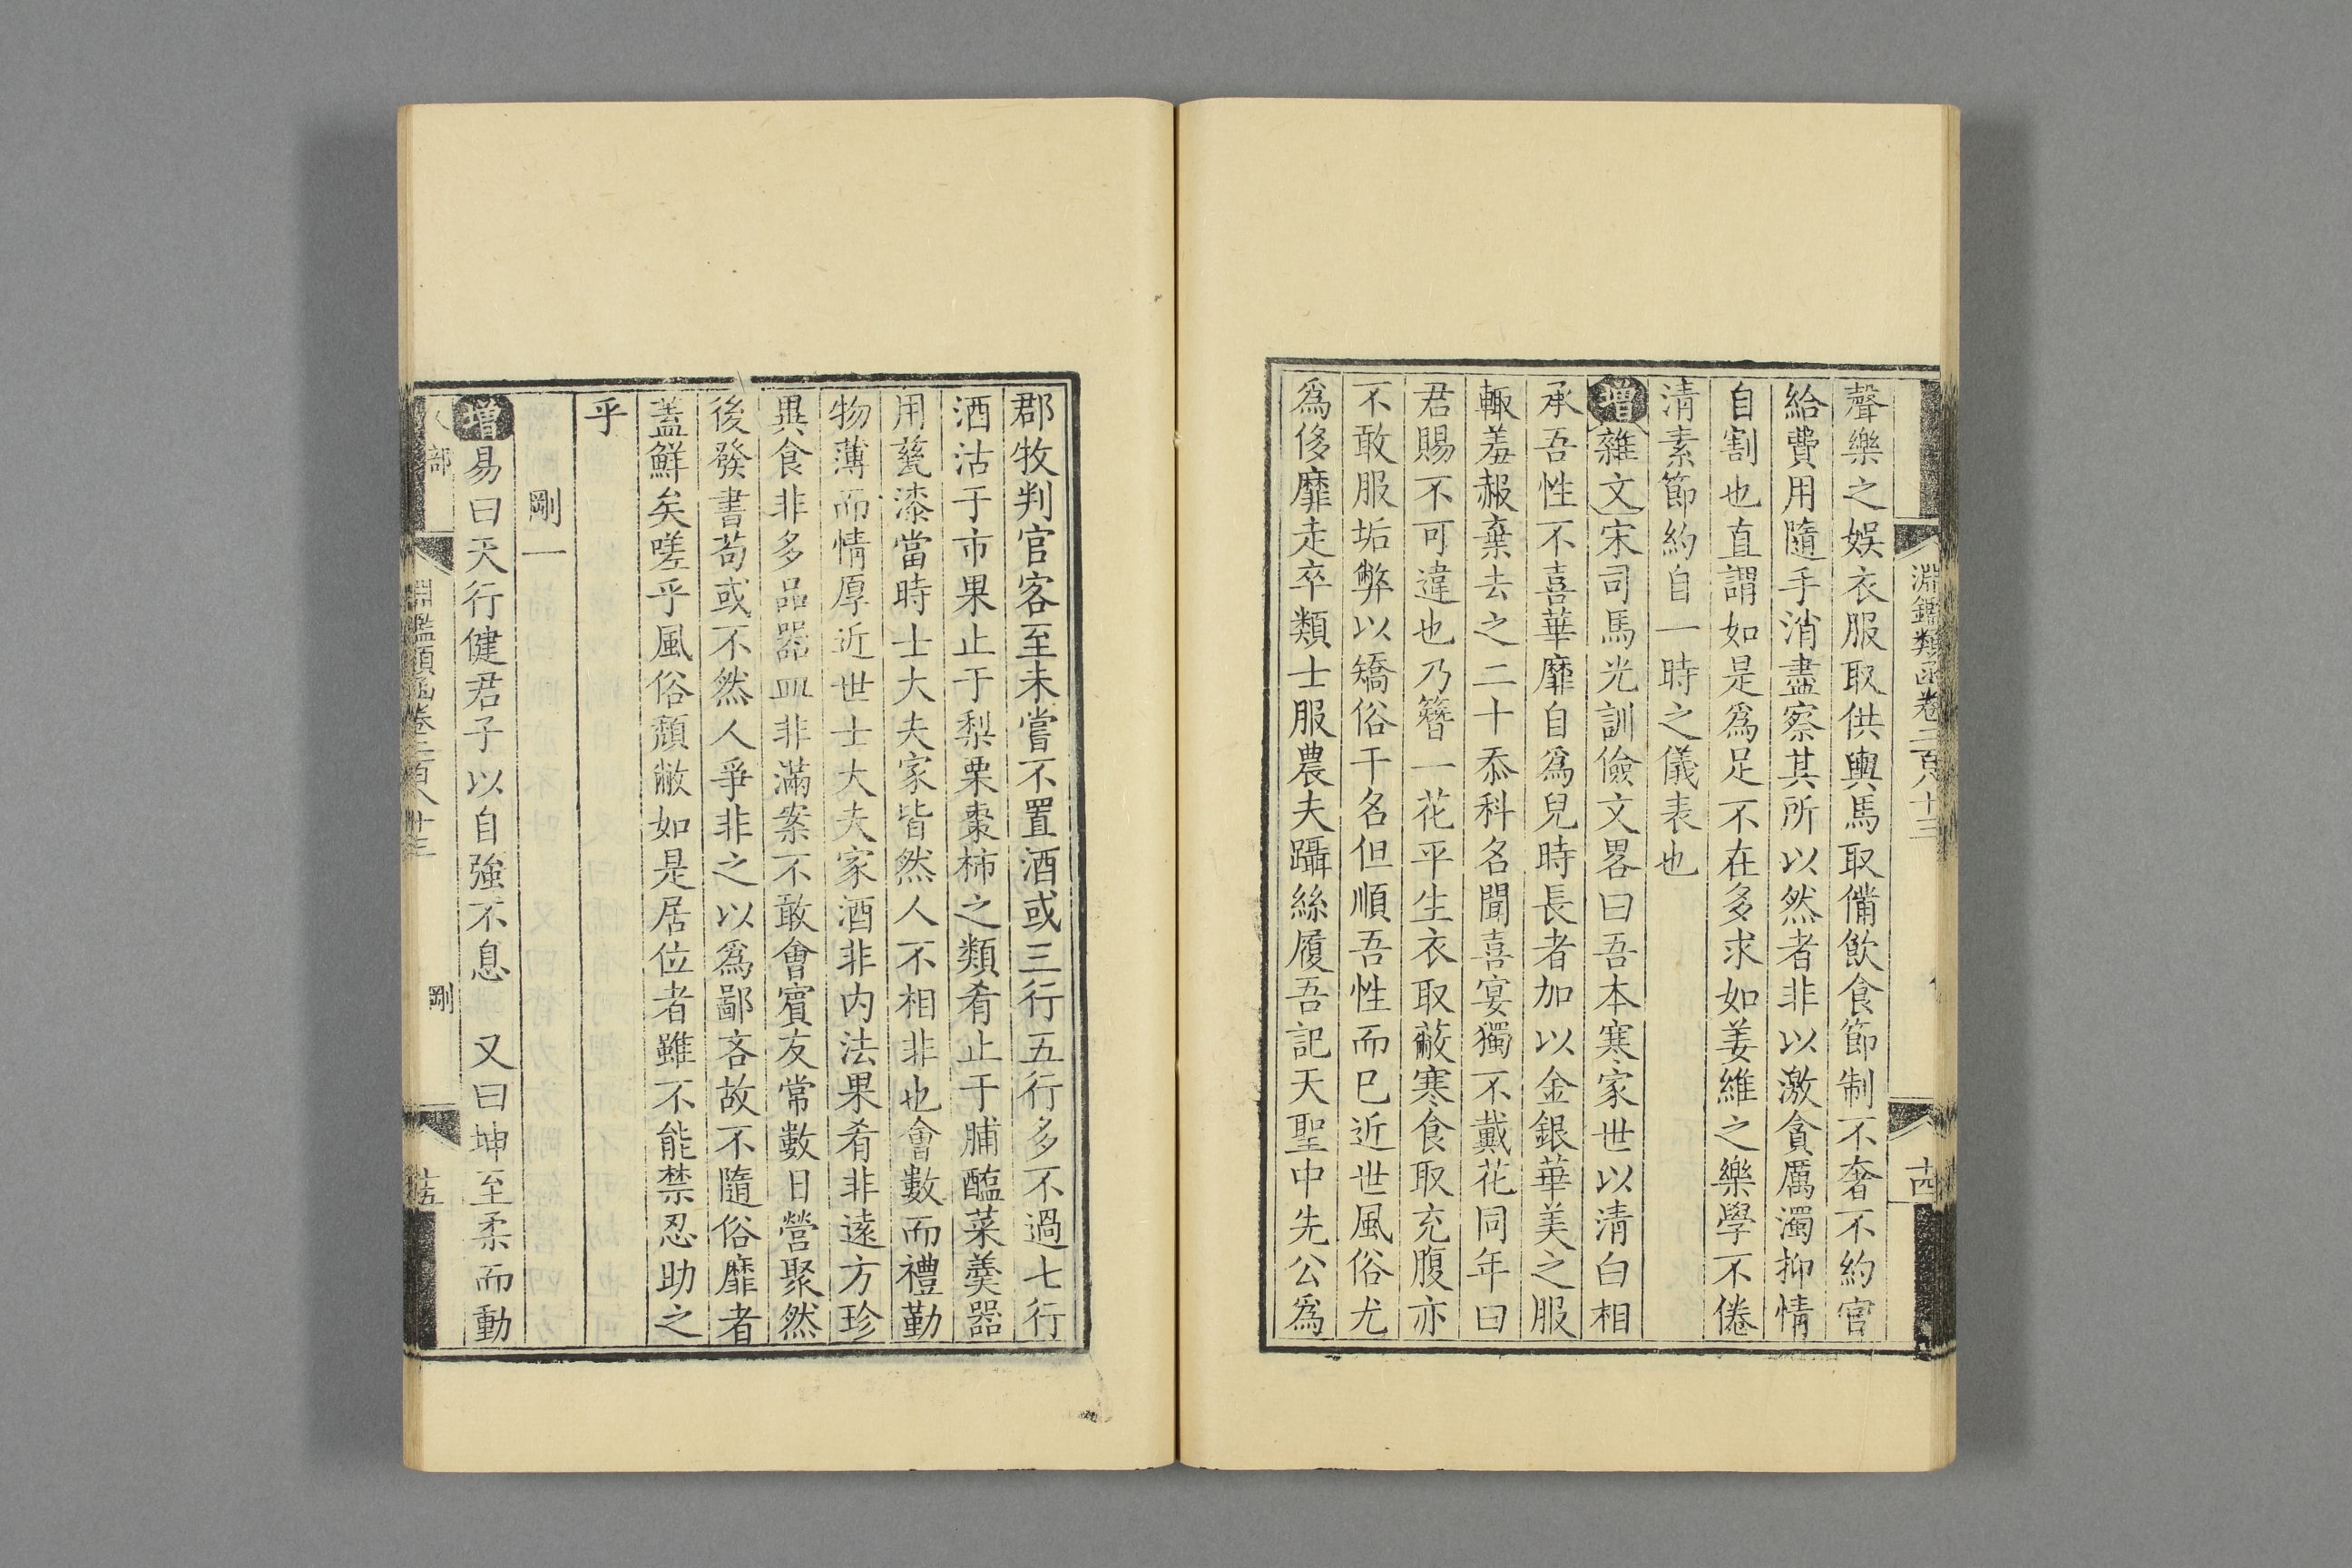 淵鑑類函卷二百八十三
十四
聲樂之娛衣服取供輿馬取備飲食節制不奢不約官
給費用隨手消盡察其所以然者非以激貪厲濁抑情
自割也直謂如是爲足不在多求如姜維之樂學不倦
清素節約自一時之儀表也
增雜文宋司馬光訓儉文畧曰吾本寒家世以清白相
承吾性不喜華靡自爲兒時長者加以金銀華美之服
輙羞赧棄去之二十忝科名聞喜宴獨不戴花同年曰
君賜不可違也乃簪一花平生衣取蔽寒食取充腹亦
不敢服垢弊以矯俗干名但順吾性而已近世風俗尤
爲侈靡走卒類士服農夫躡絲履吾記天聖中先公爲
郡牧判官客至未嘗不置酒或三行五行多不過七行
酒沽于市果止于梨栗棗柿之類肴止于脯醢菜羹器
用甆漆當時士大夫家皆然人不相非也會數而禮勤
物薄而情厚近世士大夫家酒非内法果肴非遠方珍
異食非多品器皿非滿案不敢會賓友常數日營聚然
後發書苟或不然人爭非之以爲鄙吝故不隨俗靡者
蓋鮮矣嗟乎風俗頹敝如是居位者雖不能禁忍助之
乎
剛一
增易曰天行健君子以自強不息 又曰坤至柔而動
人部
淵鑑類函卷二百八十三
剛
十五